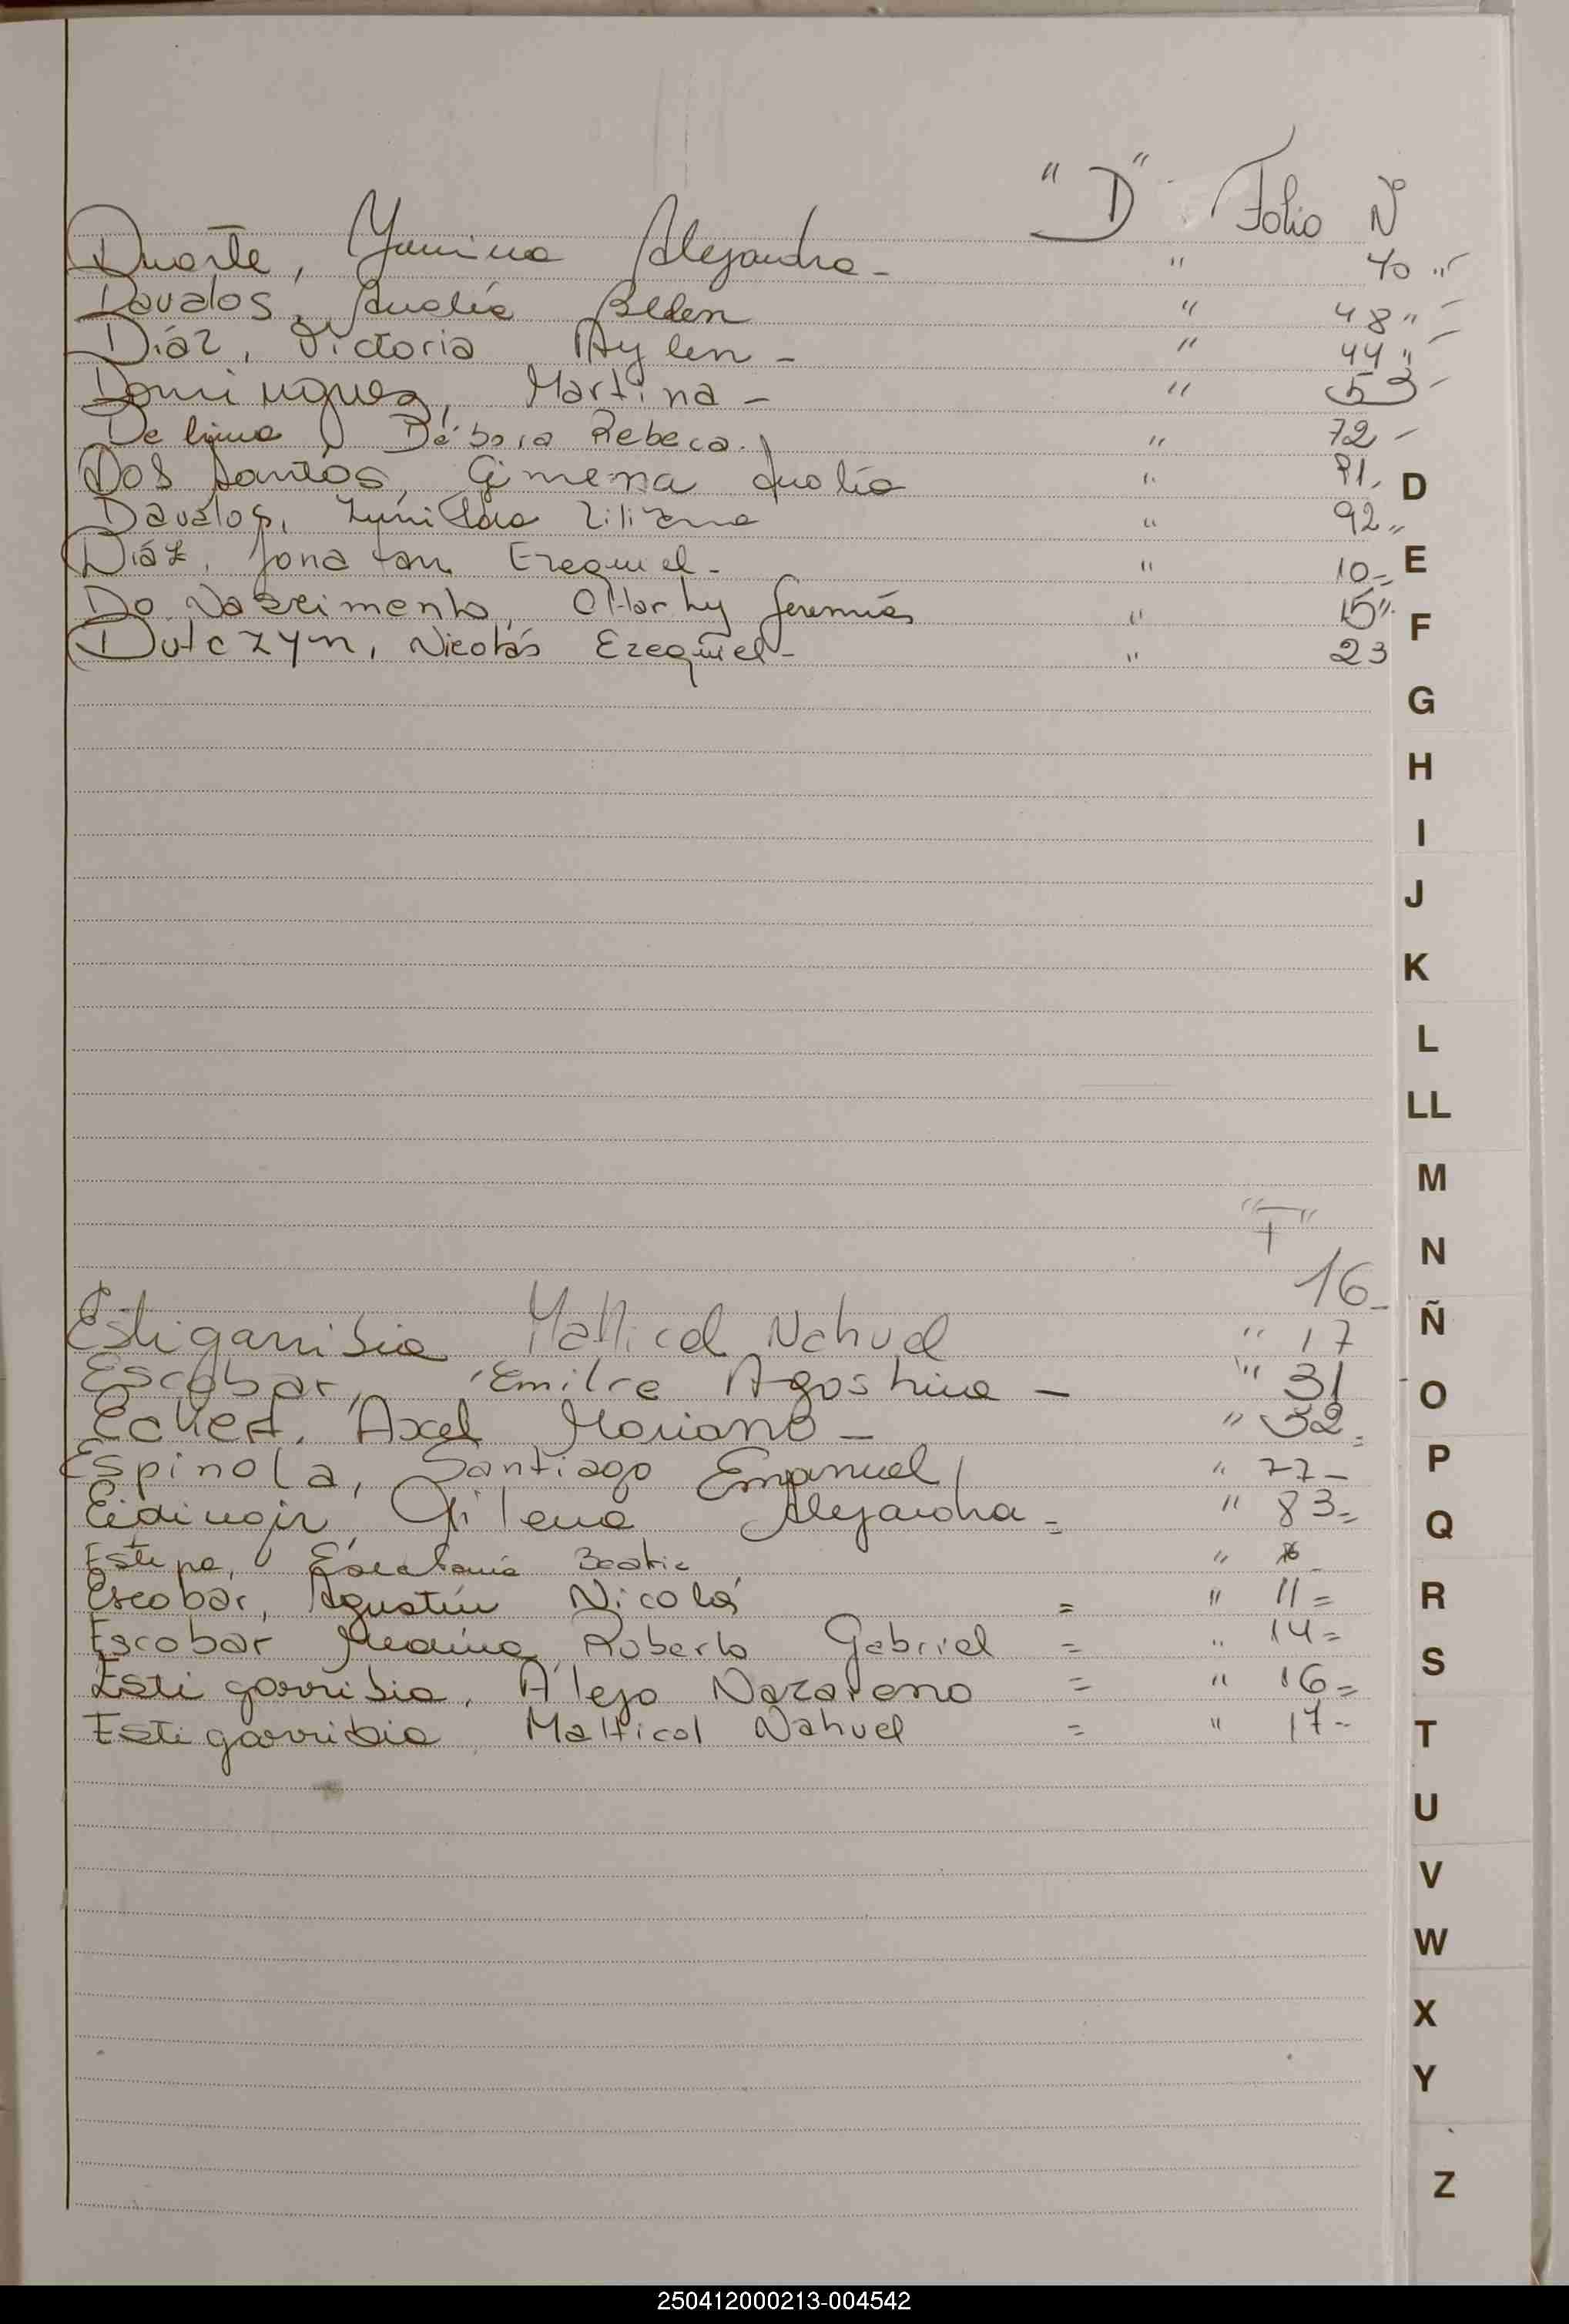 "D" Folio Nº
Duarte, Yamina Alejandra - " 40 "
Davalos, Analía Belen " 48 "
Díaz, Victoria Aylen - " 44 "
Dominguez, Martina - " 53 -
De lima, Débora Rebeca. " 72 -
Dos Santos, Gimena Analía " 81.
Davalos, Liliana " 92 "
Diáz, Jonatan Ezequiel - " 10 =
Do Nascimento, Jeremías " 15 "
Dutczyn, Nicolás Ezequiel - " 23
D
E
F
G
H
I
J
K
L
LL
M
N
Ñ
O
P
Q
R
S
T
U
V
W
X
Y
Z
"T"
16 -
Estigarribia Mattical Nahuel " 17
Escobar, Emilce Agostina - " 31
Eckert, Axel Mariano - " 52 =
Espinola, Santiago Emanuel " 77 -
Gilena Alejandra = " 83 =
Beatriz "
Escobar, Agustín Nicolás = " 11 =
Escobar Medina, Roberto Gabriel = " 14 =
Estigarribia, Alejo Nazareno = " 16 =
Estigarribia Maltical Nahuel = " 17 -
250412000213-004542